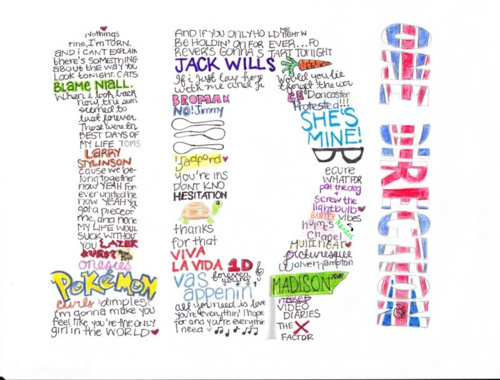 Nothings
fine, I'm TORN.
and i can't EXPLAIN
there's SOMETHING
about the way you
LOOK tonight. CATS
BLAME NIALL.
when i look back
now, the sun
seemed to
last forever
Those were th
BEST DAYS OF
MY LIFE TOMS
LARRY
STYLINSON
cause we be-
long together
now YEAH for
ever united he
now YEAH
got a piece of
me, and hone
MY LIFE WOULD
SUCK WITHOUT
YOU LAZER
onesies
POKéMON
curls dimples!
i'm gonna make you
feel like you're the only
girl in the WORLD
AND IF YOU ONLY HOLD ME
BE HOLDIN' ON FOR EVER
REVER'S GONNA START TONIGHT
JACK WILLS
If i just lay here
would you lie
with me and
forget the wor
BROMAN
NO! Jimmy
Doncaster
SHE'S
MINE!
'jagford'
you're ins
DONT KNO
HESITATION
thanks
for that
VIVA
LA VIDA 1D
forever
young
vas
appenin'
all you need is love
you're everythin' i hope
for and you're everythin
i need
ecure
WHAT FOR
pat the dog
+
screw the
lightbulb
vibes
hymes
chapel
picturesque
wolverhampton
MADISON
VIDEO
DIARIES
THE X
FACTOR
ONE DIRECTION